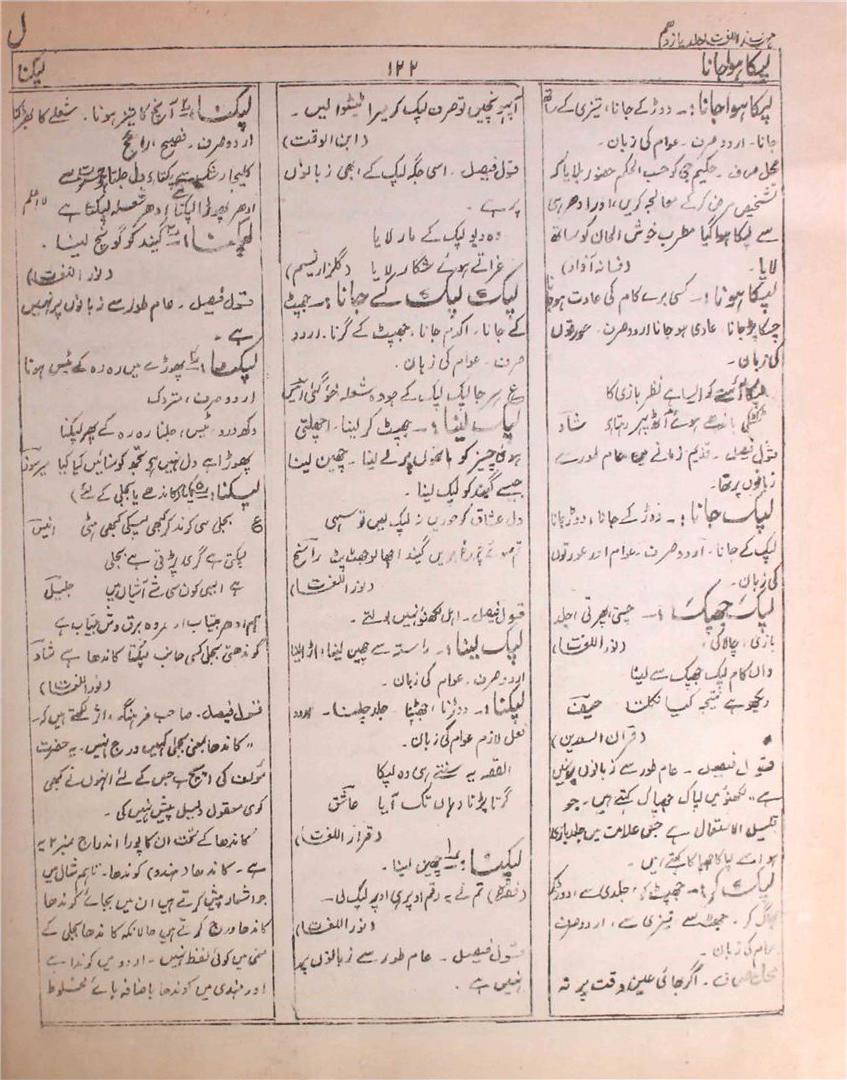 ل
مہذب اللغت جلد یازدہم
لپکا ہوا جانا
۱۲۲
لپکنا
لپکا ہوا جانا :۔ دوڑ کے جانا، تیزی کے ساتھ
جانا۔ اردو صرف۔ عوام کی زبان۔
محل صرف۔ حکیم جی کو حسب الحکم حضور بلایا کہ
تشخیص مرض کر کے معالجہ کریں، اور ادھر ہی
سے لپکا ہوا گیا مطرب خوش الحان کو ساتھ
لایا۔ (فسانہ آزاد)
لپکا ہونا :۔ کسی برے کام کی عادت ہو جانا
چسکا پڑ جانا۔ عادی ہو جانا اردو صرف۔ عورتوں
کی زبان۔
لپکا آئینے کو ایسا ہے نظر بازی کا
ٹکٹکی باندھے ہوئے آٹھ پہر رہتا ہے شاد
قول فیصل۔ قدیم زمانے میں عام طور سے
زبانوں پر تھا۔
لپک جانا :۔ دوڑ کے جانا، دوڑ جانا
لپک کے جانا۔ اردو صرف۔ عوام اور عورتوں
کی زبان۔
لپک جھپک :۔ چستی پھرتی، جلد
بازی، چالاکی۔ (نور اللغت)
واں کام لپک جھپک سے لینا
دیکھو ہے نتیجہ کیا نکلتا
(قران السعدین)
قول فیصل۔ عام طور سے زبانوں پر نہیں
ہے۔ لکھنؤ میں لپاک جھپاک کہتے ہیں۔ جو
قلیل الاستعمال ہے جس علامت میں جلد بازی
ہو اسے لپا کا جھپا کا کہتے ہیں۔
لپک کر :۔ جھپٹ کر، جلدی سے، دوڑ کر
بھاگ کر۔ جھٹ سے تیزی سے، اردو صرف
عوام کی زبان۔
محل صرف۔ اگر بھائی عین وقت پر نہ
آپہونچیں تو صرف لپک کر میرا ٹیٹوا لیں۔
(ابن الوقت)
قول فیصل۔ اسی جگہ لپک کے ابھی زبانوں
پر ہے۔
وہ دیو لپک کے مار لایا
غراتے ہوئے شکار لایا (گلزار نسیم)
لپک لپک کے جانا :۔ جھپٹ
کے جانا، اکدم جانا، جھپٹ کے گرنا، اردو
صرف۔ عوام کی زبان۔
لپک لینا :۔ جھپٹ کر لینا۔ اچھلتی
ہوئی چیز کو ہاتھوں پر لے لینا۔ چھین لینا
جیسے گیند کو لپک لینا۔
دل عشاق کو حوریں نہ لپک لیں تو سہی
(نور اللغت)
قول فیصل۔ اہل لکھنؤ نہیں بولتے۔
لپک لینا :۔ راستہ سے چھین لینا، اڑا لینا
اردو صرف۔ عوام کی زبان۔
لپکنا :۔ دوڑنا، جھپٹنا۔ جلد چلنا۔ اردو
فعل لازم عوام کی زبان۔
القصہ یہ سنتے ہی وہ لپکا
گرتا پڑتا وہاں تک آیا عاشق
لپکنا :۔ چھین لینا۔
(فقرہ) تم نے یہ رقم اوپر ہی اوپر لپک لی۔
(نور اللغت)
قول فیصل۔ عام طور سے زبانوں پر
نہیں ہے۔
لپکنا :۔ آنچ کا تیز ہونا۔ شعلے کا بھڑکنا
اردو صرف۔ فصیح، رائج
ادھر پھوڑا لپکتا ہے ادھر شعلہ لپکتا ہے
لپکنا :۔ گیند کو گوچ لینا۔
(نور اللغت)
قول فیصل۔ عام طور سے زبانوں پر نہیں
ہے۔
لپکنا :۔ پھوڑے میں رہ رہ کے ٹیس ہونا
اردو صرف، متروک
دکھ درد، ٹیس، جلنا رہ رہ کے پھر لپکنا
پھوڑا ہے دل نہیں ہے تجھ کو سنائیں کیا کیا میر سوز
لپکنا :۔ چمکنا (کاندھے یا بجلی کے لئے)
ع بجلی سی کوند کر کبھی لپکی کبھی ہٹی انیس
لپکتی ہے گری پڑتی ہے بجلی
ہے ایسی کون سی شے آشیاں میں جلیل
ہم ادھر بیتاب ادھر وہ برق وش بیتاب ہے
کوندھتی بجلی کسی جانب لپکتا کاندھا ہے شاد
(نور اللغت)
قول فیصل۔ صاحب فرہنگ اثر لکھتے ہیں کہ۔
" کاندھا بمعنی بجلی کہیں درج نہیں۔ یہ حضرت
مؤلف کی اپج ہے جس کے لئے انھوں نے کبھی
کوئی معقول دلیل پیش نہیں کی۔
کاندھا کے تحت ان کا پورا اندراج نمبر ۲ یہ
ہے۔ کاندھا (ہندو) کوندھا۔ تاہم مثال میں
جو اشعار پیش کرتے ہیں ان میں بجائے کوندھا
کاندھا درج کرتے ہیں حالانکہ کاندھا بجلی کے
معنی میں کوئی لفظ نہیں۔ اردو میں کوندا ہے
اور ہندی میں کوندھا باضافہ ہائے مخلوط